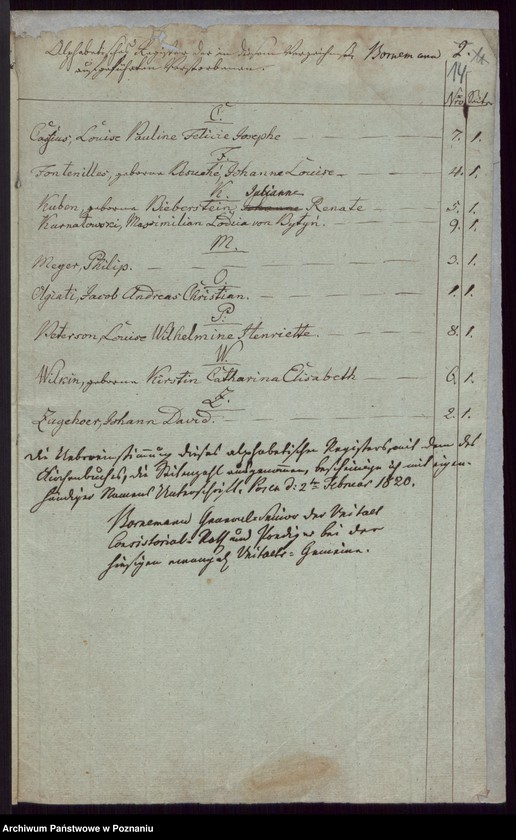 Alphabetisches Register der in diesem Verzeichniß Bornemann 2.
aufgeführten Verstorbenen.
14
Nro Seite
C.
Cassius, Louise Pauline Felicie Josephe 7. 1.
F.
Fontenilles, geborne Bouché, Johanne Louise 4. 1.
K. Julianne
Kuben, geborne Bieberstein, Johanne Renate 5. 1.
Kurnatowski, Maximilian Lodzia von Bytyń. 9. 1.
M.
Meyer, Philip. 3. 1.
O.
Olgiati, Jacob Andreas Christian. 1. 1.
P.
Peterson, Louise Wilhelmine Henriette. 8. 1.
W.
Wilkin, geborne Kirstin Catharina Elisabeth 6. 1.
Z.
Zugehoer, Johann David. 2. 1.
Die Uebereinstimmung dieses alphabetischen Registers, mit dem des
Kirchenbuches, die Seitenzahl ausgenommen, bescheinige ich mit eigen-
händiger Namens Unterschrift. Posen d. 2ten Februar 1820.
Bornemann General-Senior der Unitaet
Consistorial-Rath und Prediger bei der
hiesigen evangel. Unitaets-Gemeine.
Archiwum Państwowe w Poznaniu